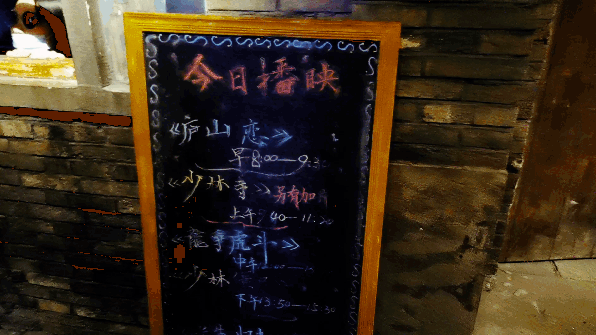 今日播映
《庐山恋》
早8:00—9:3
《少林寺》另有加
上午 40—11:20
《龍争虎斗》
中午
少林
下午13:50—15:30